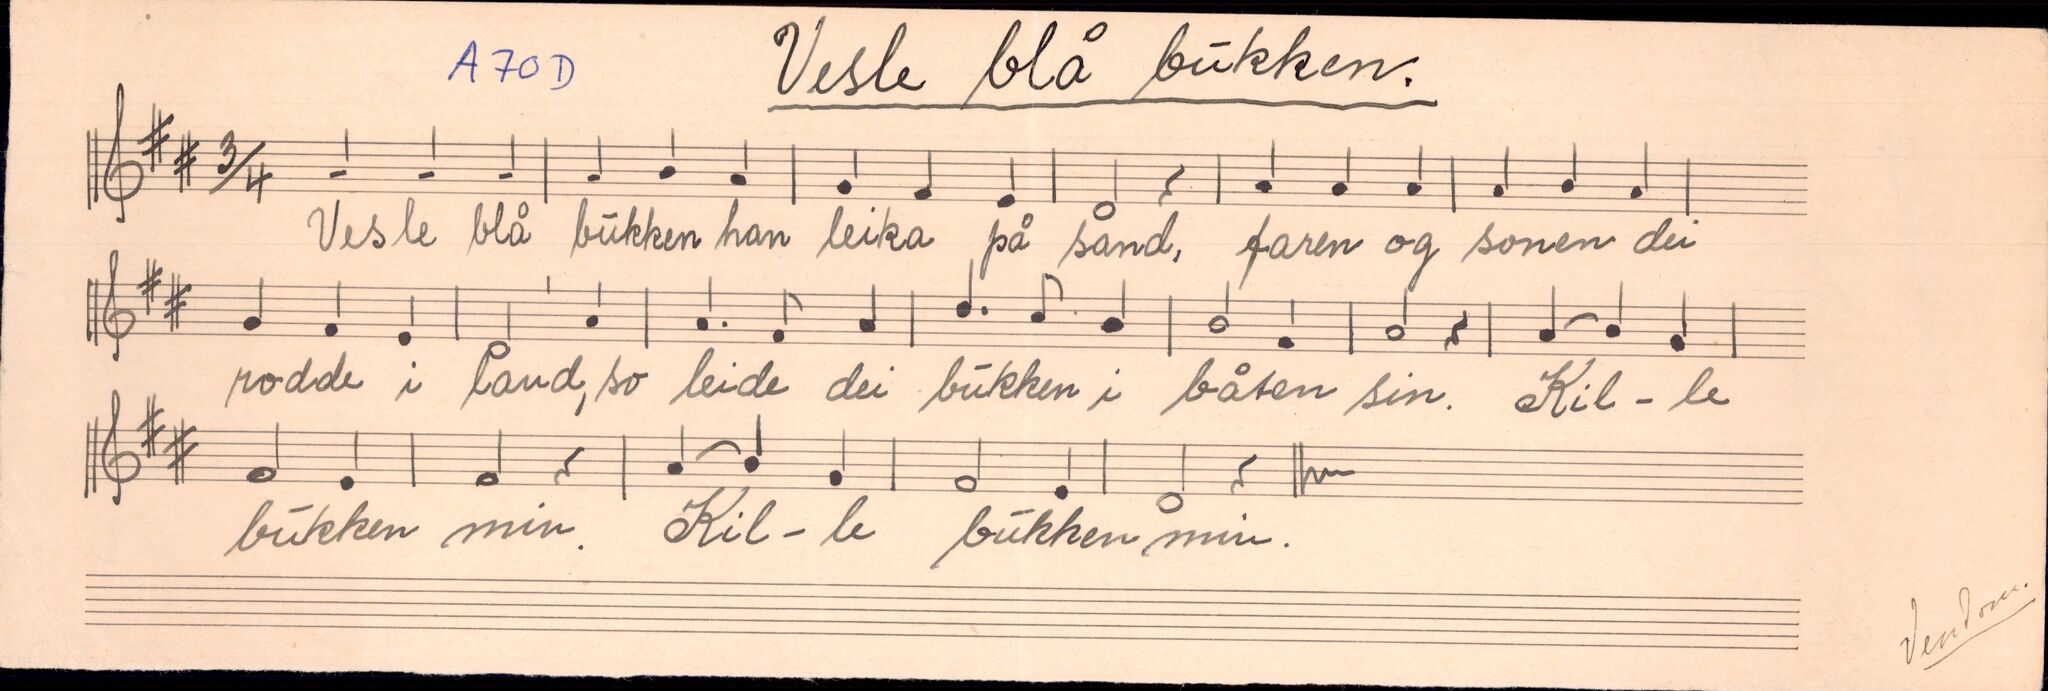 A 70 D
Vesle blå bŭkken.
3/4
Vesle blå bŭkken han leika på sand, faren og sonen dei
rodde i land, so leide dei bŭkken i båten sin. Kil - le
bŭkken min. Kil - le bŭkken min.